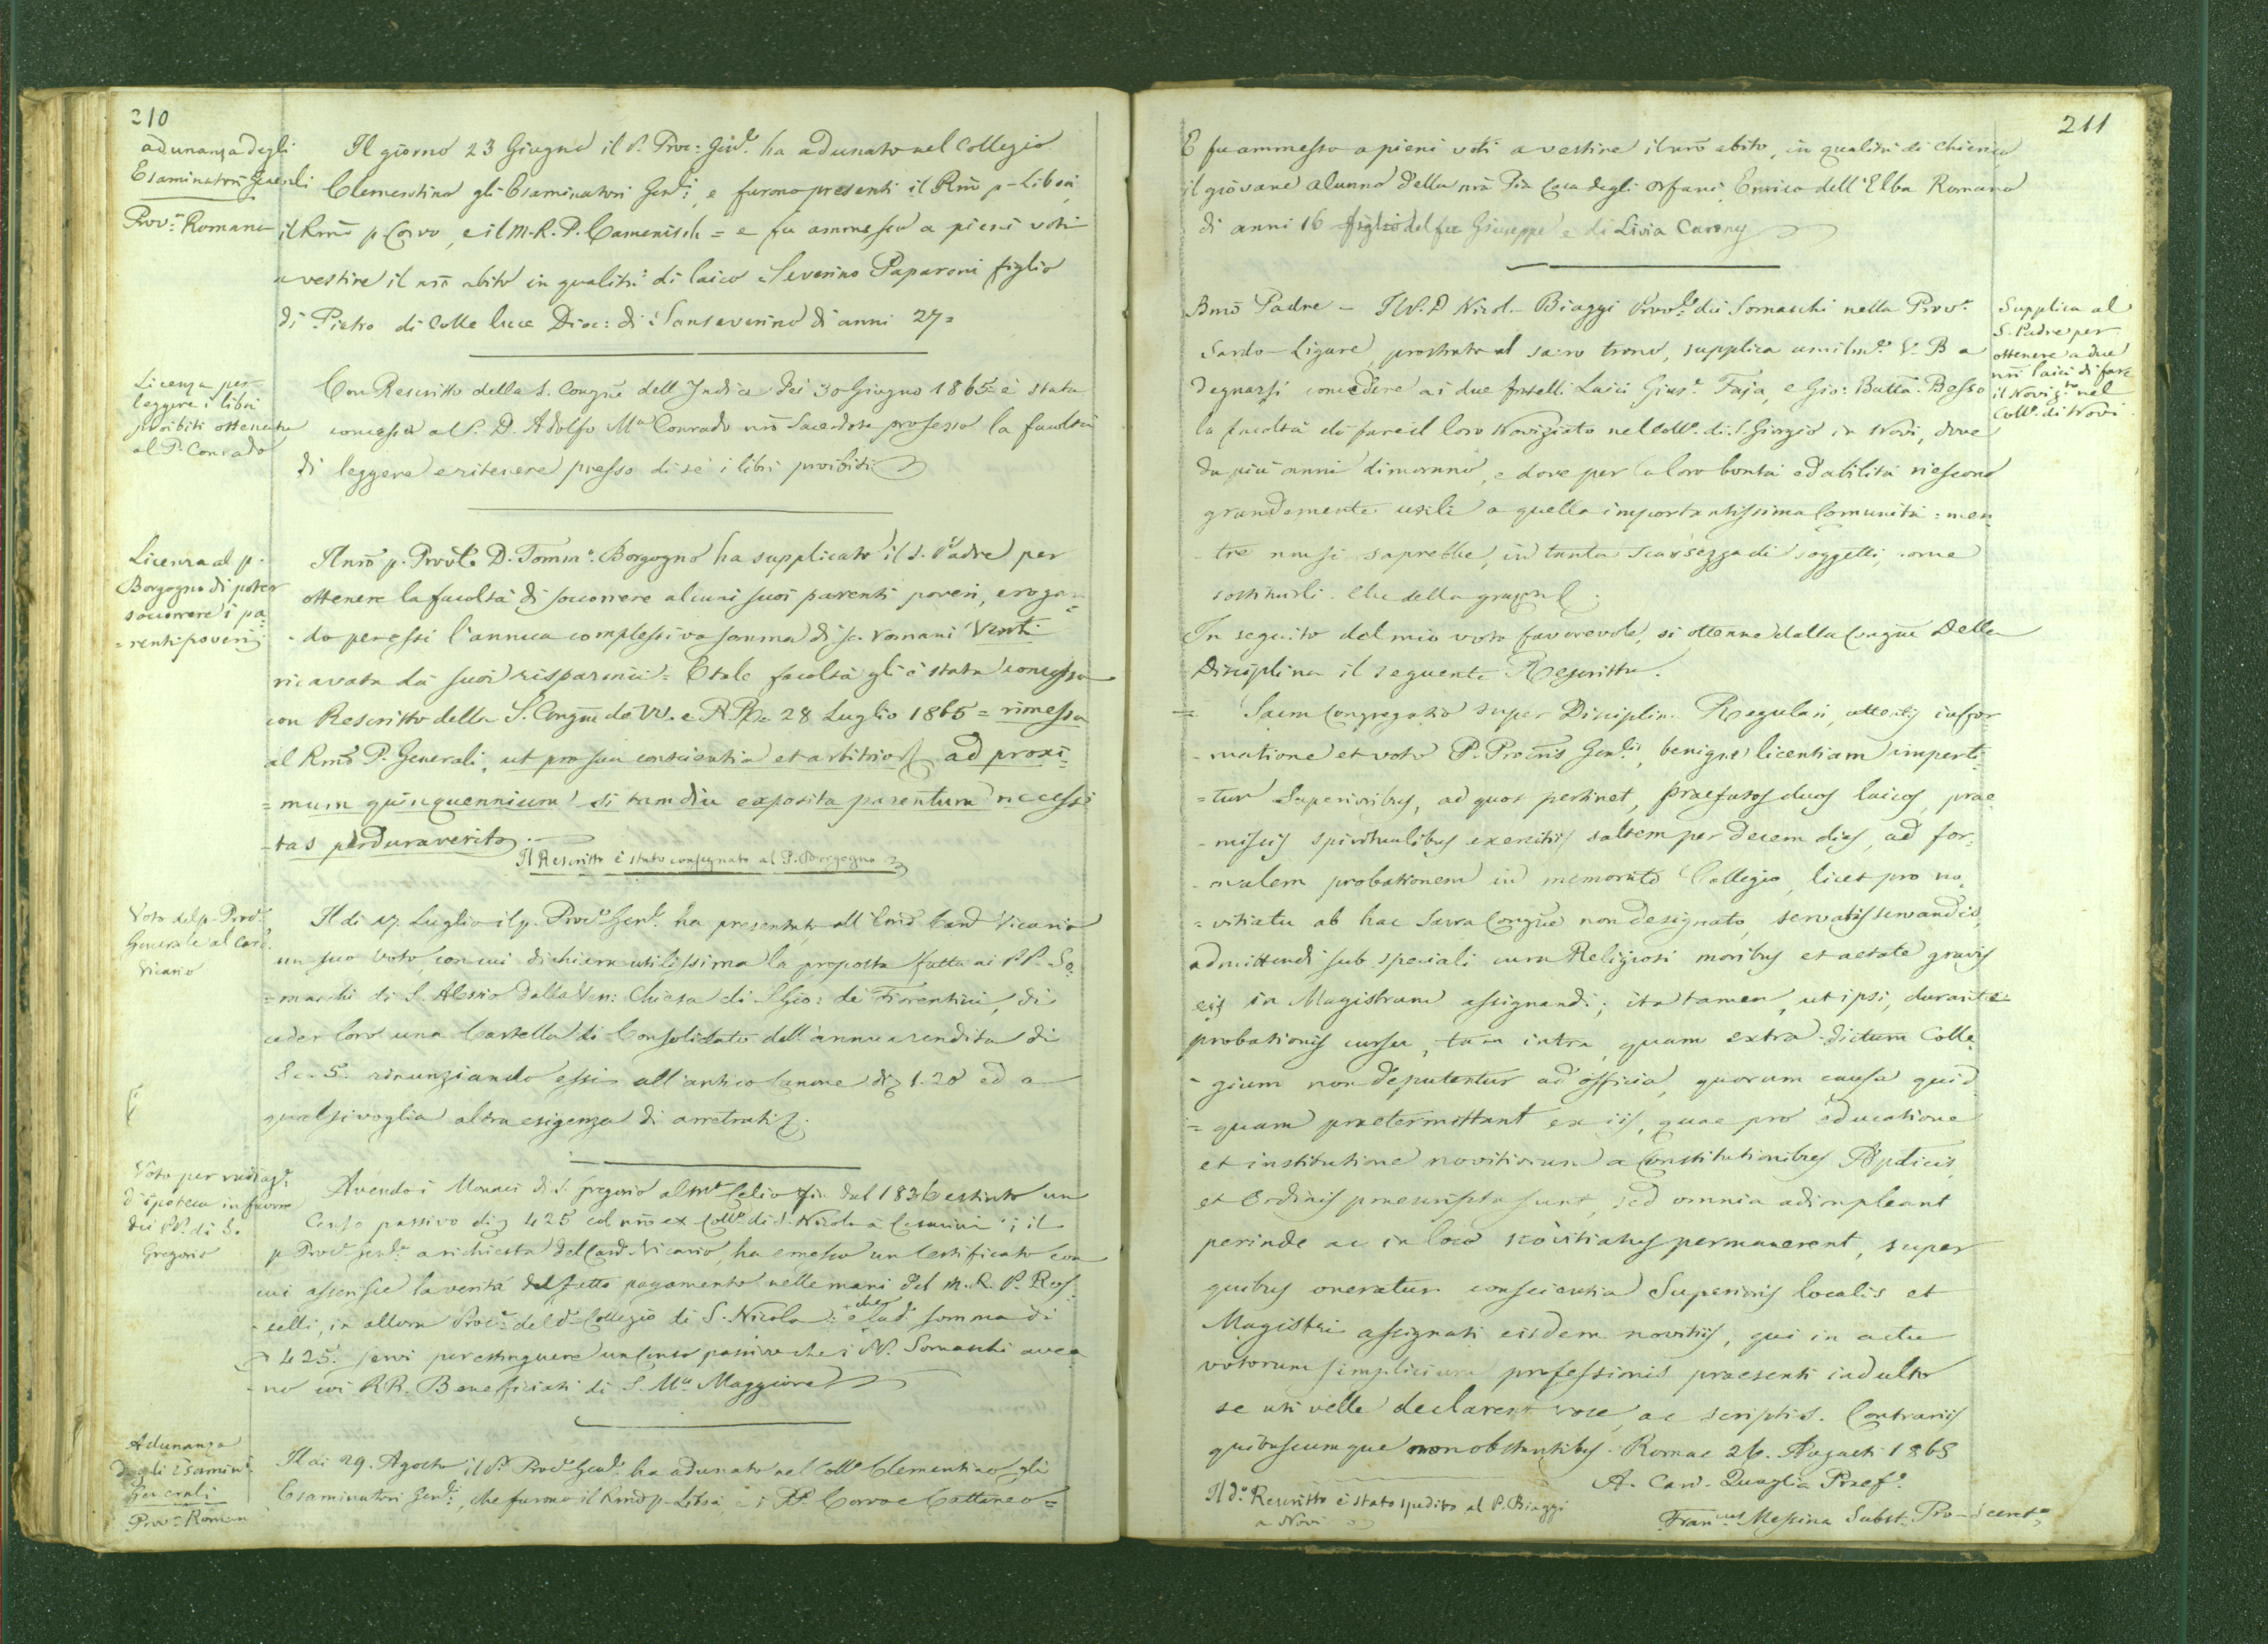 210
adunanza degli
Esaminatori Generali
Prov.ª Romana
Il giorno 23 Giugno il P. Proc: Gen.le ha adunato nel Collegio
Clementino gli Esaminatori Gen.li, e furono presenti il Rmo p. Libois,
il Rmo p. Corvo, e il M. R. P. Camenisch = e fu ammesso a pieni voti
a vestire il nro abito in qualità di laico Severino Paparoni figlio
di Pietro di Colle luce Dioc: di Sanseverino di anni 27=
Licenza per
leggere i libri
proibiti ottenuta
al P. Conrado
Con Rescritto della S. Congne dell'Indice dei 30 Giugno 1865 è stata
concessa al P. D. Adolfo Mª Conrado nro Sacerdote professo la facoltà
di leggere e ritenere presso di sè i libri proibiti
Licenza al p.
Borgogno di poter
soccorrere i pa
=renti poveri
Il nro p. Provle D. Tomm.º Borgogno ha supplicato il S. Padre per
ottenere la facoltà di soccorrere alcuni suoi parenti poveri, erogan=
-do per essi l'annua complessiva somma di sc. romani Venti
ricavata da' suoi risparmii = E tale facoltà gli è stata concessa
con Rescritto della S. Congne de' VV. e RR. 28 Luglio 1865 = rimessa
al Rmo P. Generali, ut pro sua conscientia et arbitrio ad proxi=
=mum quinquennium si tamdiu exposita parentum necessi
-tas perduraverit
Il Rescritto è stato consegnato al P. Borgogno
Voto del p. Procr
Generale al Card.
Vicario
Il dì 17 Luglio il p. Procr Genle ha presentato all'Emo Card Vicario
un suo voto, con cui dichiara utilissima la proposta fatta ai PP. So=
=maschi di S. Alessio dalla Ven: Chiesa di S. Gio: de' Fiorentini, di
ceder loro una Cartella di Consolidato dell'annua rendita di
Sc. 5. rinunziando essi all'antico Canone di 1.20 ed a
qualsivoglia altra esigenza di arretrati.
Voto per radiaz.e
d'ipoteca in favore
dei PP. di S.
Gregorio
Avendo i Monaci di S. Gregorio al Mte Celio fin dal 1836 estinto un
Censo passivo di 425 col nro ex Collo di S. Nicola a Cesarini; il
p. Procr Genle a richiesta del Card. Vicario, ha emesso un Certificato con
cui asserisce la verità del fatto pagamento nelle mani del M. R. P. Ros=
-selli, in allora Procr del do Collegio di S. Nicola: e che la da somma di
425. servì per estinguere un Censo passivo che i PP. Somaschi avea=
-no coi RR. Beneficiati di S. Mª Maggiore
Adunanza
degli Esamin.i
Generali
Prov.ª Roman
Il dì 29. Agosto il P. Procr Genle ha adunato nel Collo Clementino gli
Esaminatori Gen.li, che furono il Rmo p. Libois, e i PP. Corvo e Cattaneo=
211
E fu ammesso a pieni voti a vestire il nro abito, in qualità di Chierico
il giovane alunno della nra Pia Casa degli Orfani, Enrico dell'Elba Romano
di anni 16 figlio del fu Giuseppe e di Livia
Supplica al
S. Padre per
ottenere a due
nri laici di fare
il Noviz.to nel
Collo di Novi
Bmo Padre – Il P. D. Nicol. Biaggi Provle dei Somaschi nella Prov.ª
Sardo-Ligure, prostrato al sacro trono, supplica umilme V. B. a
degnarsi concedere ai due fratelli Laici Gius.e Faja, e Gio: Batta Besso
la facoltà di fare il loro Noviziato nel Collo di S. Giorgio in Novi, dove
da più anni dimorano, e dove per la loro bontà ed abilità riescono
grandemente utili a quella importantissima Comunità: men
-tre non si saprebbe, in tanta scarsezza di soggetti, come
sostituirli. Che della grazia
In seguito del mio voto favorevole, si ottenne dalla Congne Della
Disciplina il seguente Rescritto.
= Sacra Congregatio super Disciplin. Regulari, attentis infor
-matione et voto P. Procris Genlis, benigne licentiam imperti
=tur Superioribus, ad quos pertinet, praefatos duos laicos, prae
-missis spiritualibus exercitiis saltem per decem dies, ad for
-malem probationem in memorato Collegio, licet pro no
=vitiatu ab hac Sacra Congne non designato, servatis servandis,
admittendi sub speciali cura Religiosi moribus et aetate gravis
eis in Magistrum assignandi; ita tamen, ut ipsi, durante
probationis cursu, tam intra, quam extra dictum Colle
-gium non deputentur ad officia, quorum causa quid
=quam praetermittant ex iis, quae pro educatione
et institutione novitiorum a Constitutionibus Aplicis,
et Ordinis praescripta sunt, sed omnia adimpleant
perinde ac in loco Novitiatus permanerent, super
quibus oneratur conscientia Superioris localis et
Magistri assignati eisdem novitiis, qui in actu
votorum simplicium professionis praesenti indulto
se uti velle declarent voce, ac scriptis. Contrariis
quibuscumque non obstantibus. Romae 26. Augusti 1865
A. Card. Quaglia Praef.s
Il do Rescritto è stato spedito al P. Biaggi
a Novi
Fran.cus Messina Subst. Pro-Secret.s